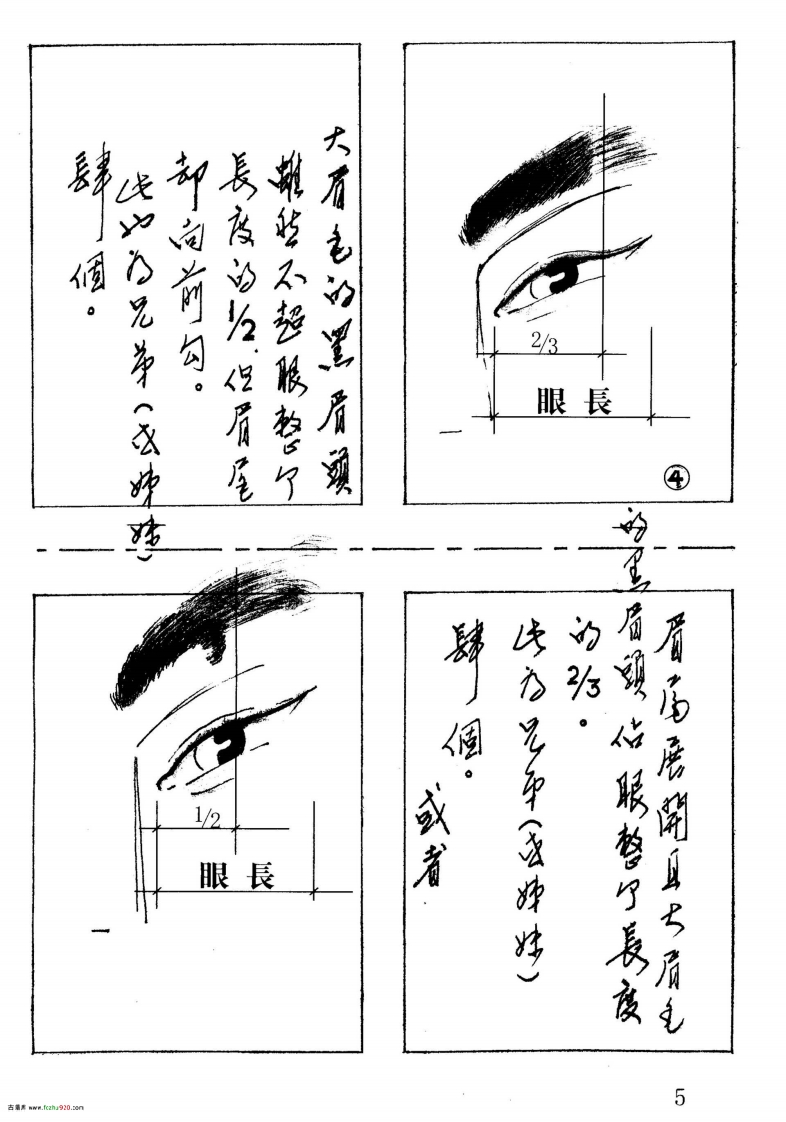 2/3
眼長
一
④
眉尾展開且大眉毛
的黑眉頭佔眼整个長度
的2/3。
此为兄弟(或姊妹)
肆個。
或者
大眉毛的黑眉頭
雖然不超眼整个
長度的1/2.但眉尾
却向前勾。
此也为兄弟(或姊妹)
肆個。
1/2
眼長
一
5
古籍库 www.fczhu920.com